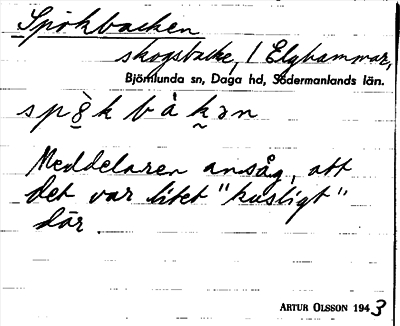 Spökbacken
skogsbacke, / Elghammar,
Björnlunda sn, Daga hd, Södermanlands län.
spö̀kbàkən
Meddelaren ansåg, att
det var litet "kusligt"
där.
ARTUR OLSSON 1943